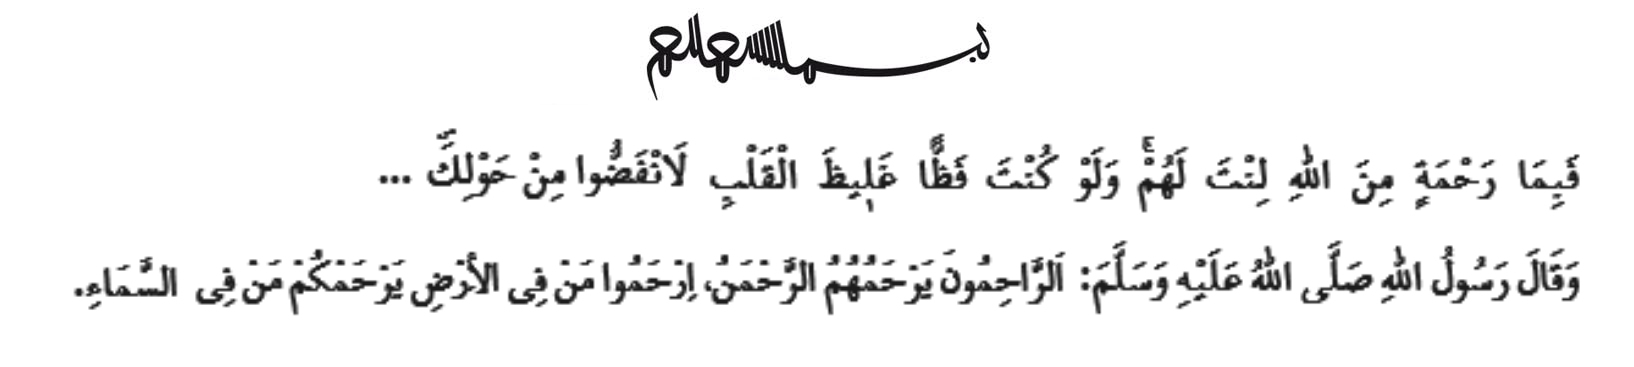 بسم الله الرحمن الرحيم
فَبِمَا رَحْمَةٍ مِنَ اللّٰهِ لِنْتَ لَهُمْۚ وَلَوْ كُنْتَ فَظًّا غَلٖيظَ الْقَلْبِ لَانْفَضُّوا مِنْ حَوْلِكَۖ ...
وَقَالَ رَسُولُ اللّٰهِ صَلَّى اللّٰهُ عَلَيْهِ وَسَلَّمَ: اَلرَّاحِمُونَ يَرْحَمُهُمُ الرَّحْمَنُ، اِرْحَمُوا مَنْ فِى الأَرْضِ يَرْحَمْكُمْ مَنْ فِى السَّمَاءِ.